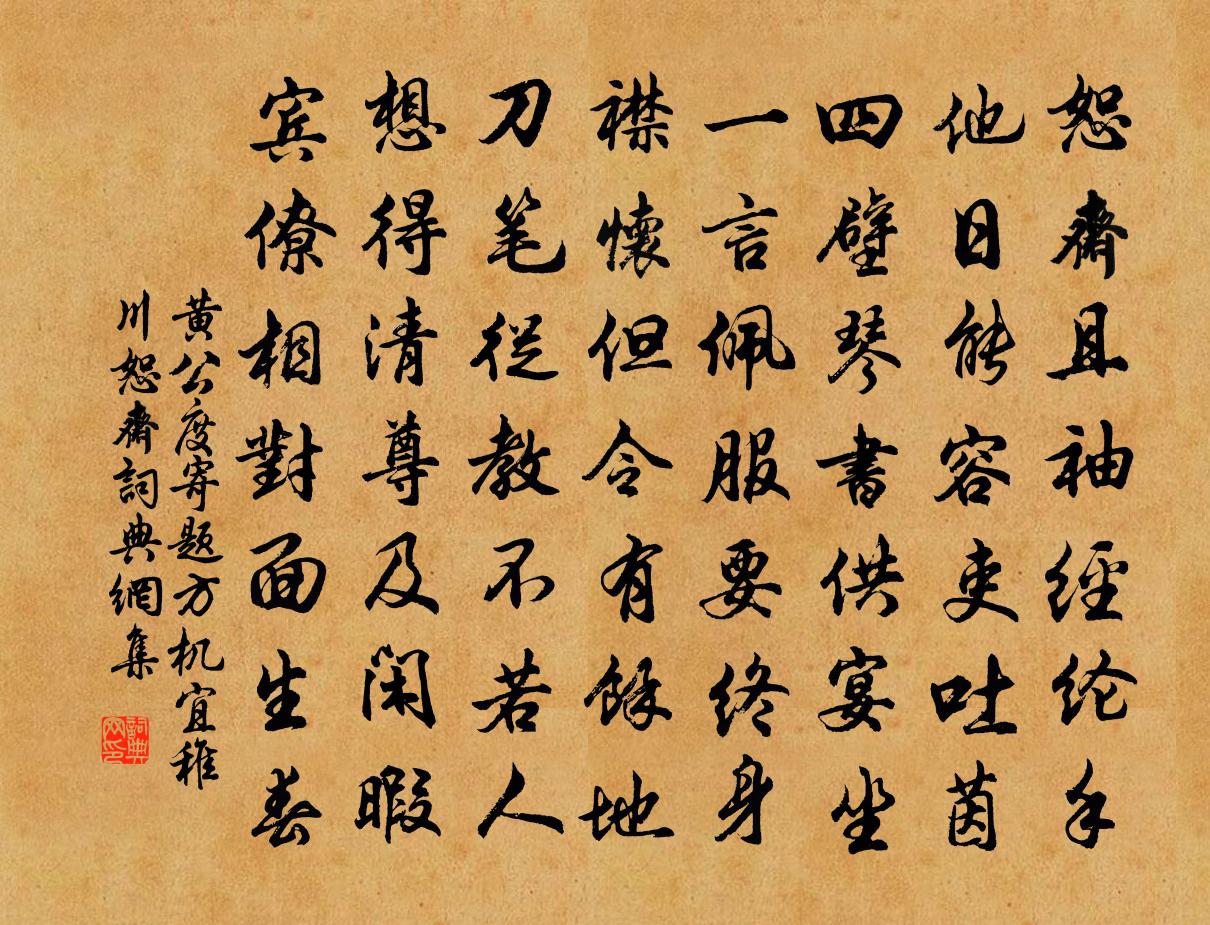 恕齋且袖经纶手
他日能容吏吐茵
四壁琴書供宴坐
一言佩服要终身
襟懷但令有餘地
刀笔從教不若人
想得清尊及闲暇
宾僚相對面生春
黄公度寄题方机宜稚
川恕齋詞典網集
詞典
网印